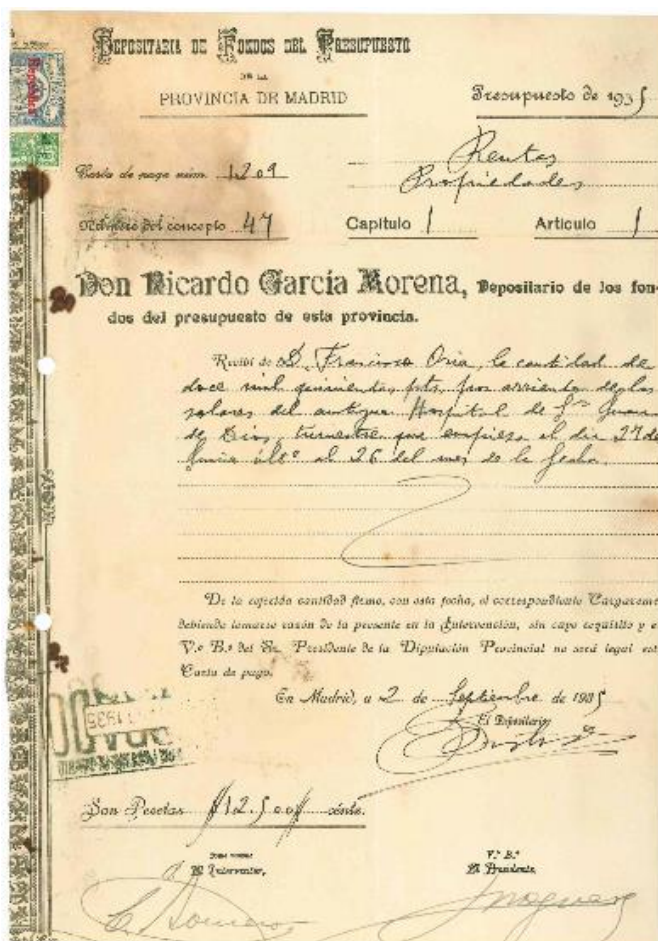 DEPOSITARIA DE FONDOS DEL PRESUPUESTO
DE LA
PROVINCIA DE MADRID
Presupuesto de 1935
República
Carta de pago núm. 1209
Rentas
Propiedades
Número del concepto 47
Capítulo 1 Artículo 1
Don Ricardo García Morena, Depositario de los fon-
dos del presupuesto de esta provincia.
Recibí de D. Francisco Oria, la cantidad de
doce mil quinientas pts, por arriendo de los
solares del antiguo Hospital de Sn Juan
de Dios, trimestre que empieza el día 27 de
Junio últº al 26 del mes de la fecha.
De la referida cantidad firmo, con esta fecha, el correspondiente Cargareme
debiendo tomarse razón de la presente en la Intervención, sin cuyo requisito y e
V.º B.º del Sr. Presidente de la Diputación Provincial no será legal est
Carta de pago.
En Madrid, a 2 de Septiembre de 1935
El Depositario
1935
Son Pesetas //12.500// cénts.
El Interventor,
V.º B.º
El Presidente,